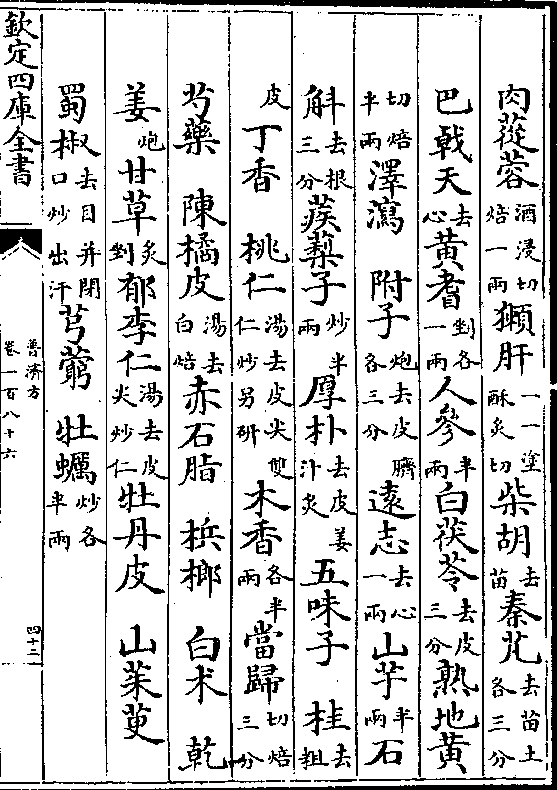 肉蓯蓉酒浸切焙一兩獺肝一一塗酥炙切柴胡去苗秦艽去苗土各三分
巴戟天去心黃耆剉各一兩人參半兩白茯苓去皮三分熟地黃
切焙半兩澤瀉附子炮去皮臍各三分遠志去心一兩山芋半兩石
斛去根三分蒺蔾子炒半兩厚朴去皮姜汁炙五味子桂去粗
皮丁香桃仁湯去皮尖雙仁炒另研木香各半兩當歸切焙三分
芍藥陳橘皮湯去白焙赤石脂梹榔白术乾
姜炮甘草炙剉郁李仁湯去皮尖炒仁牡丹皮山茱萸
蜀椒去目并閉口炒出汗芎藭牡蠣炒各半兩
欽定四庫全書
普濟方
卷一百八十六
四十二